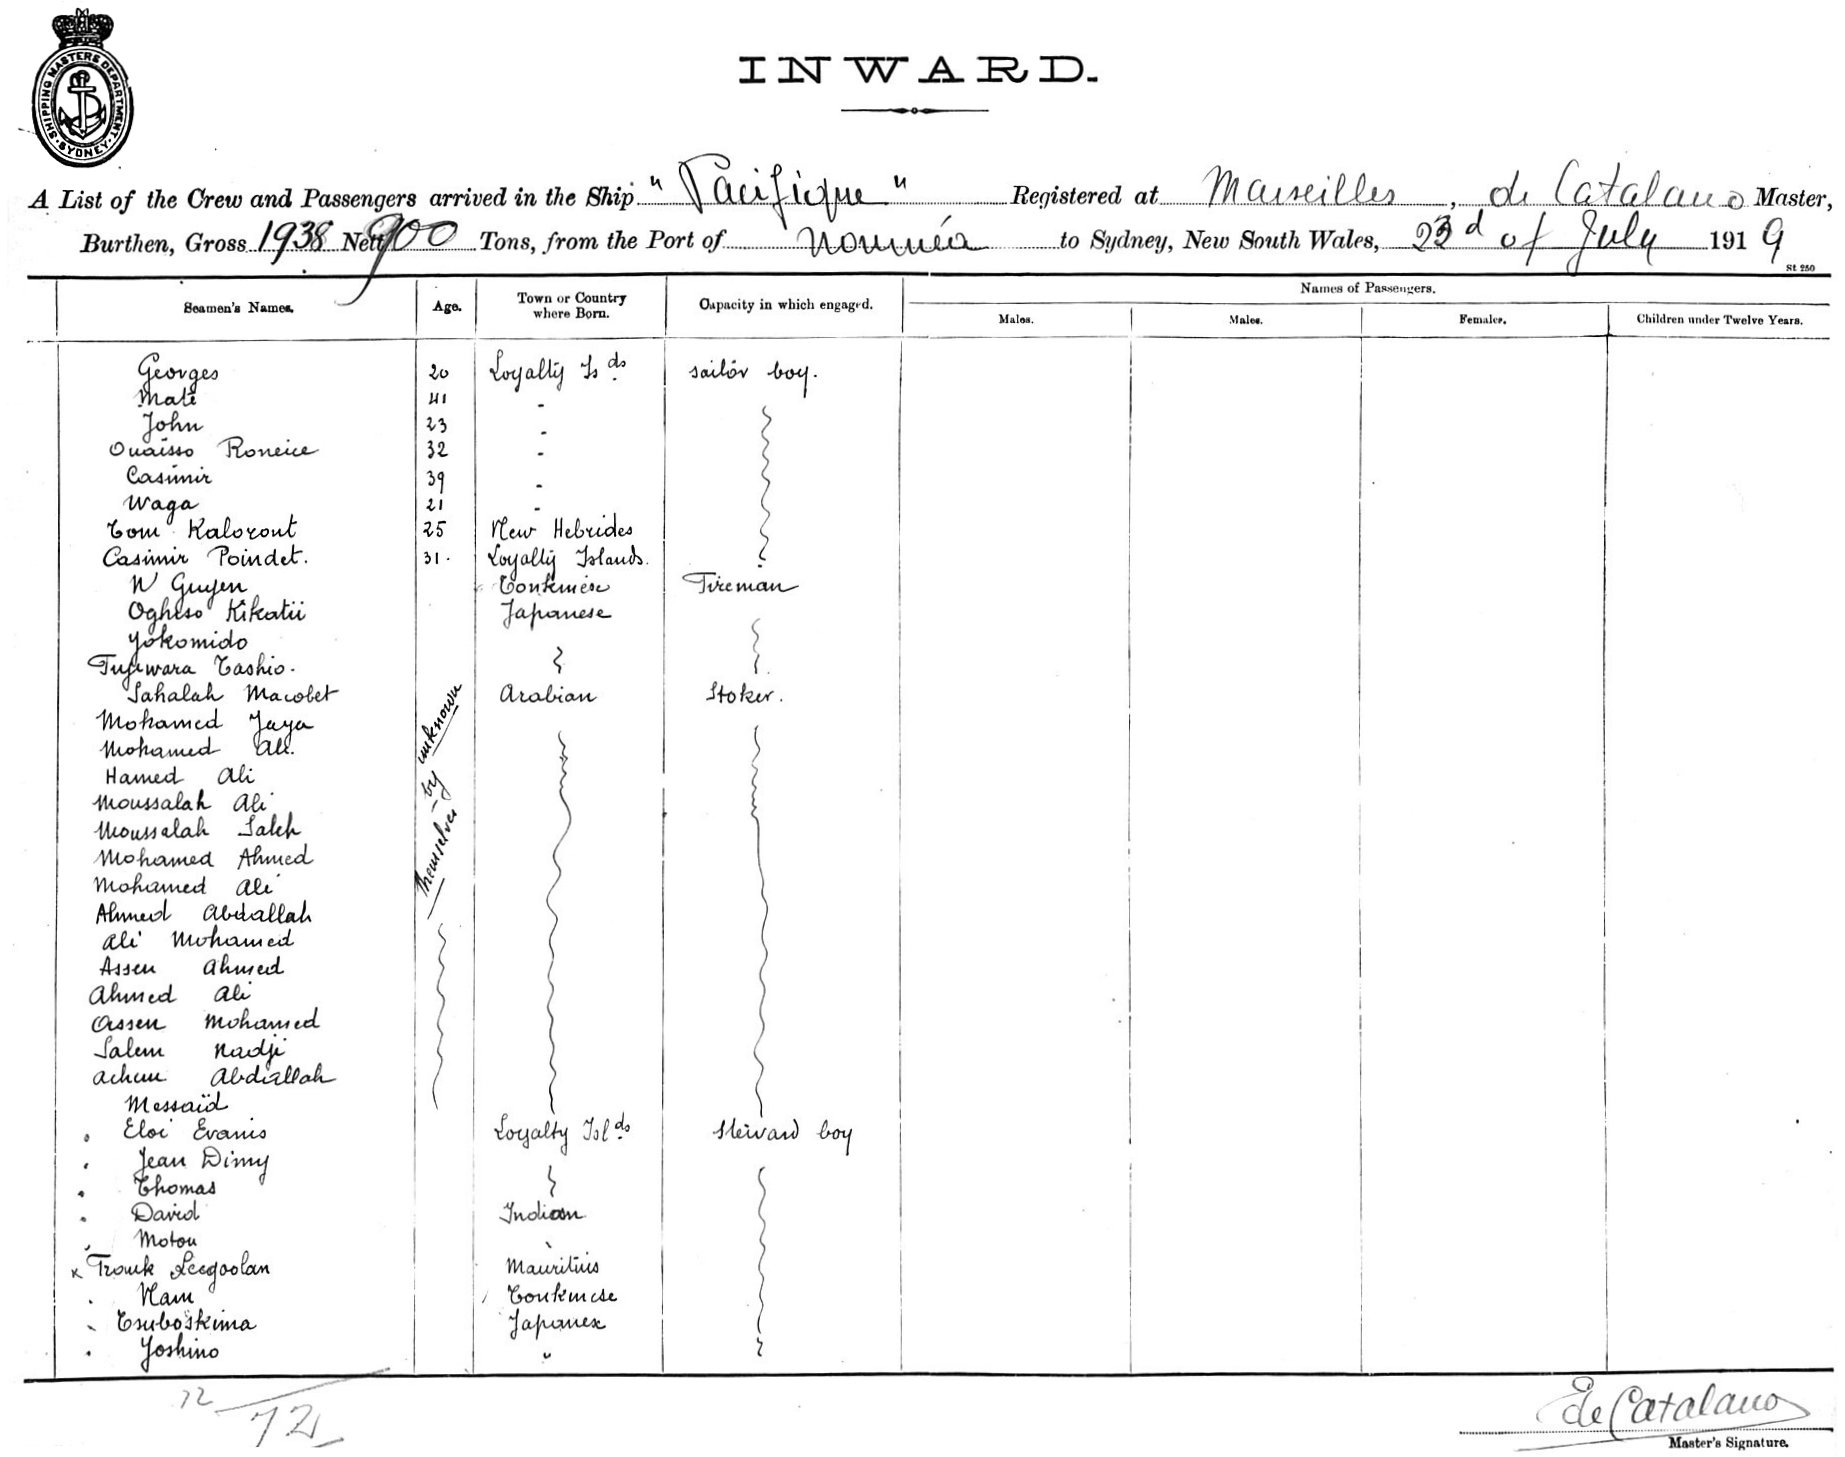 SHIPPING MASTERS DEPARTMENT
SYDNEY
INWARD.
A List of the Crew and Passengers arrived in the Ship "Pacifique" Registered at Marseilles, de Catalano Master,
Burthen, Gross 1938 Nett 900 Tons, from the Port of Nouméa to Sydney, New South Wales, 23d of July 1919
St. 250
Seamen's Names. Age. Town or Country where Born. Capacity in which engaged. Names of Passengers.
Males. Males. Females. Children under Twelve Years.
Georges 20 Loyalty Is ds sailor boy.
Mate 41 "
John 23 "
Ouaisso Roneice 32 "
Casimir 39 "
Waga 21 "
Tom Kaloront 25 New Hebrides
Casimir Poindet. 31. Loyalty Islands.
N' Guyen Tonkinese Fireman
Oghiso Kikatii Japanese
Yokomido
Fujiwara Tashio.
Sahalah Macobet Arabian Stoker.
Mohamed Jaya
Mohamed Ali.
Hamed Ali
Moussalah Ali
Moussalah Saleh
Mohamed Ahmed
Mohamed Ali
Ahmed Abdallah
Ali Mohamed
Assen Ahmed
Ahmed Ali
Assen Mohamed
Salem Nadji
Achem Abdallah
Messaïd
unknown by themselves
Eloi Evanis Loyalty Isl ds Steward boy
Jean Dimy
Thomas
David Indian
Motou "
x Frank Leegoolan Mauritius
Nam Tonkinese
Tsuboskima Japanese
Yoshino "
72
72
de Catalano
Master's Signature.